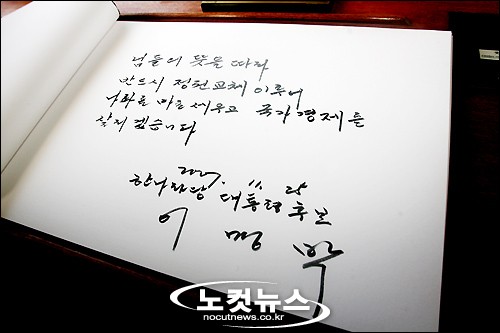 님들의 뜻을 따라
반드시 정권교체 이루어
나라를 바로 세우고 국가경제를
살리겠습니다
2007. 11. 25
한나라당 대통령후보
이 명 박
노컷뉴스
nocutnews.co.kr